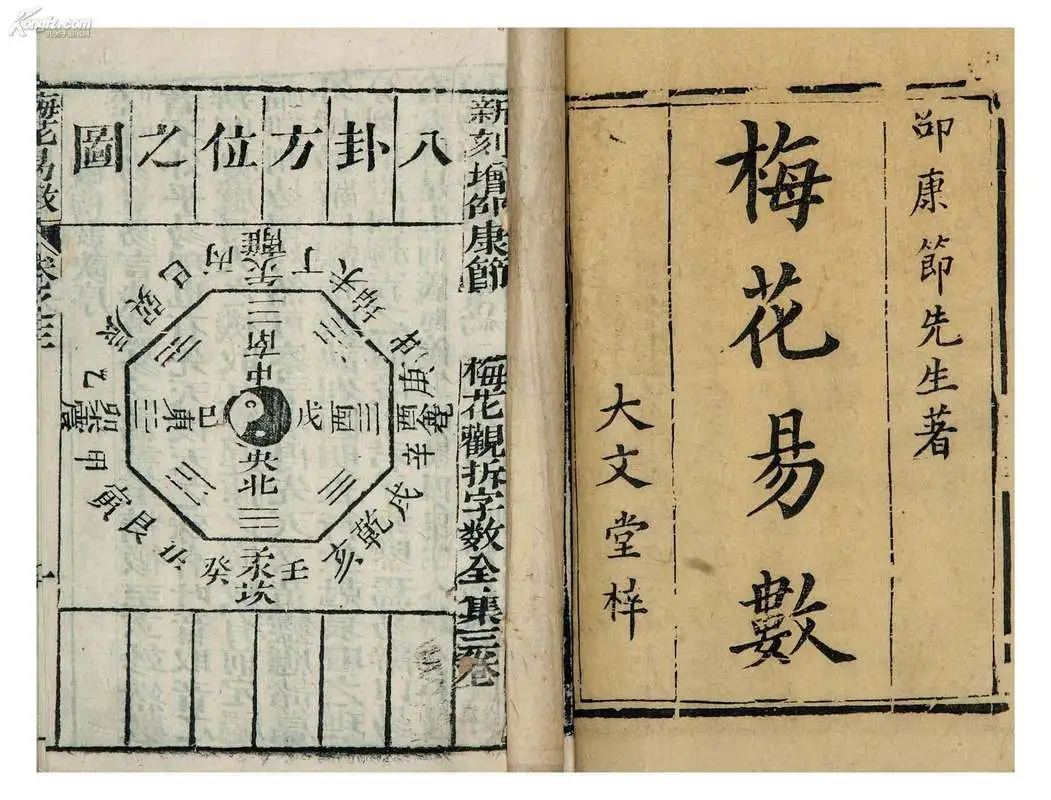 Kongfz.com
邵康節先生著
梅花易數
大文堂梓
新刻增邵康節 梅花觀拆字数全集三卷
八卦方位之圖
丁
離
丙
巳
巽
辰
乙
卯
震
甲
寅
艮
癸
坎
壬
亥
乾
戌
辛
酉
庚
申
坤
未
南
中
東
巳
戊
酉
央
北
梅花易数
卷之三